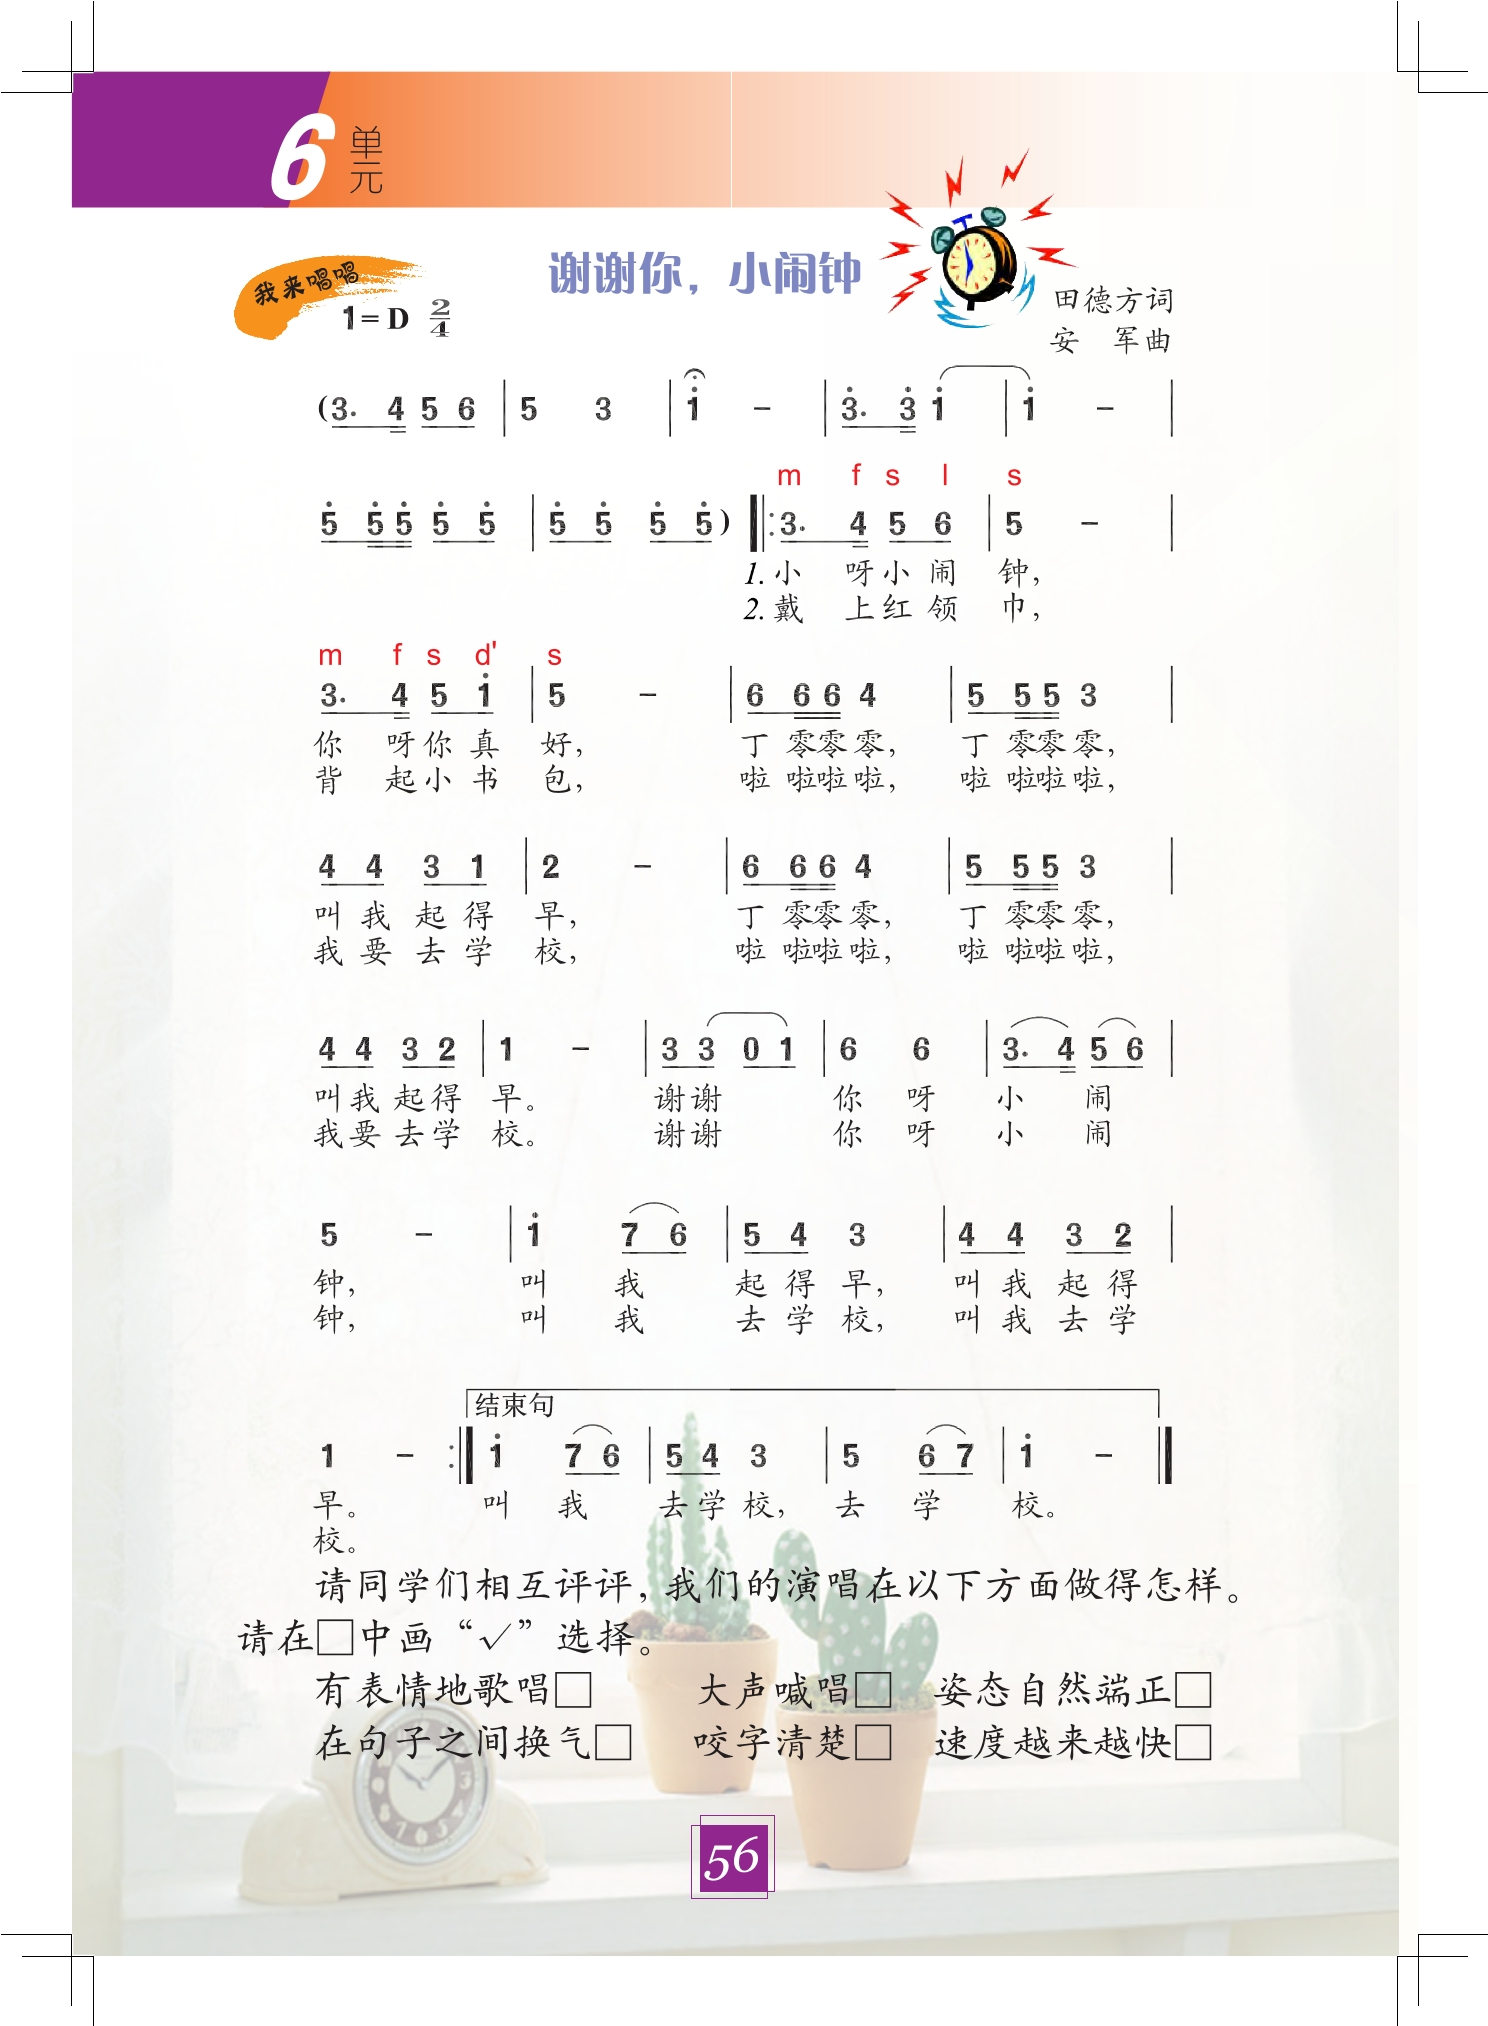 6 单元
谢谢你，小闹钟
我来唱唱
1=D 2/4
田德方词
安 军曲
(3. 4 5 6 | 5 3 | 1̇ - | 3̇. 3̇ 1̇ | 1̇ - |
5̇ 5̇ 5̇ 5̇ 5̇ | 5̇ 5̇ 5̇ 5̇ )
m f s l s
‖: 3. 4 5 6 | 5 - |
1. 小 呀 小 闹 钟，
2. 戴 上 红 领 巾，
m f s d' s
3. 4 5 1̇ | 5 - | 6 6 6 4 | 5 5 5 3 |
你 呀 你 真 好， 丁 零零 零， 丁 零零 零，
背 起 小 书 包， 啦 啦啦 啦， 啦 啦啦 啦，
4 4 3 1 | 2 - | 6 6 6 4 | 5 5 5 3 |
叫 我 起 得 早， 丁 零零 零， 丁 零零 零，
我 要 去 学 校， 啦 啦啦 啦， 啦 啦啦 啦，
4 4 3 2 | 1 - | 3 3 0 1 | 6 6 | 3. 4 5 6 |
叫 我 起 得 早。 谢 谢 你 呀 小 闹
我 要 去 学 校。 谢 谢 你 呀 小 闹
5 - | 1̇ 7 6 | 5 4 3 | 4 4 3 2 |
钟， 叫 我 起 得 早， 叫 我 起 得
钟， 叫 我 去 学 校， 叫 我 去 学
结束句
1 - :‖ 1̇ 7 6 | 5 4 3 | 5 6 7 | 1̇ - ‖
早。 叫 我 去 学 校， 去 学 校。
校。
请同学们相互评评，我们的演唱在以下方面做得怎样。
请在□中画“√”选择。
有表情地歌唱□ 大声喊唱□ 姿态自然端正□
在句子之间换气□ 咬字清楚□ 速度越来越快□
56